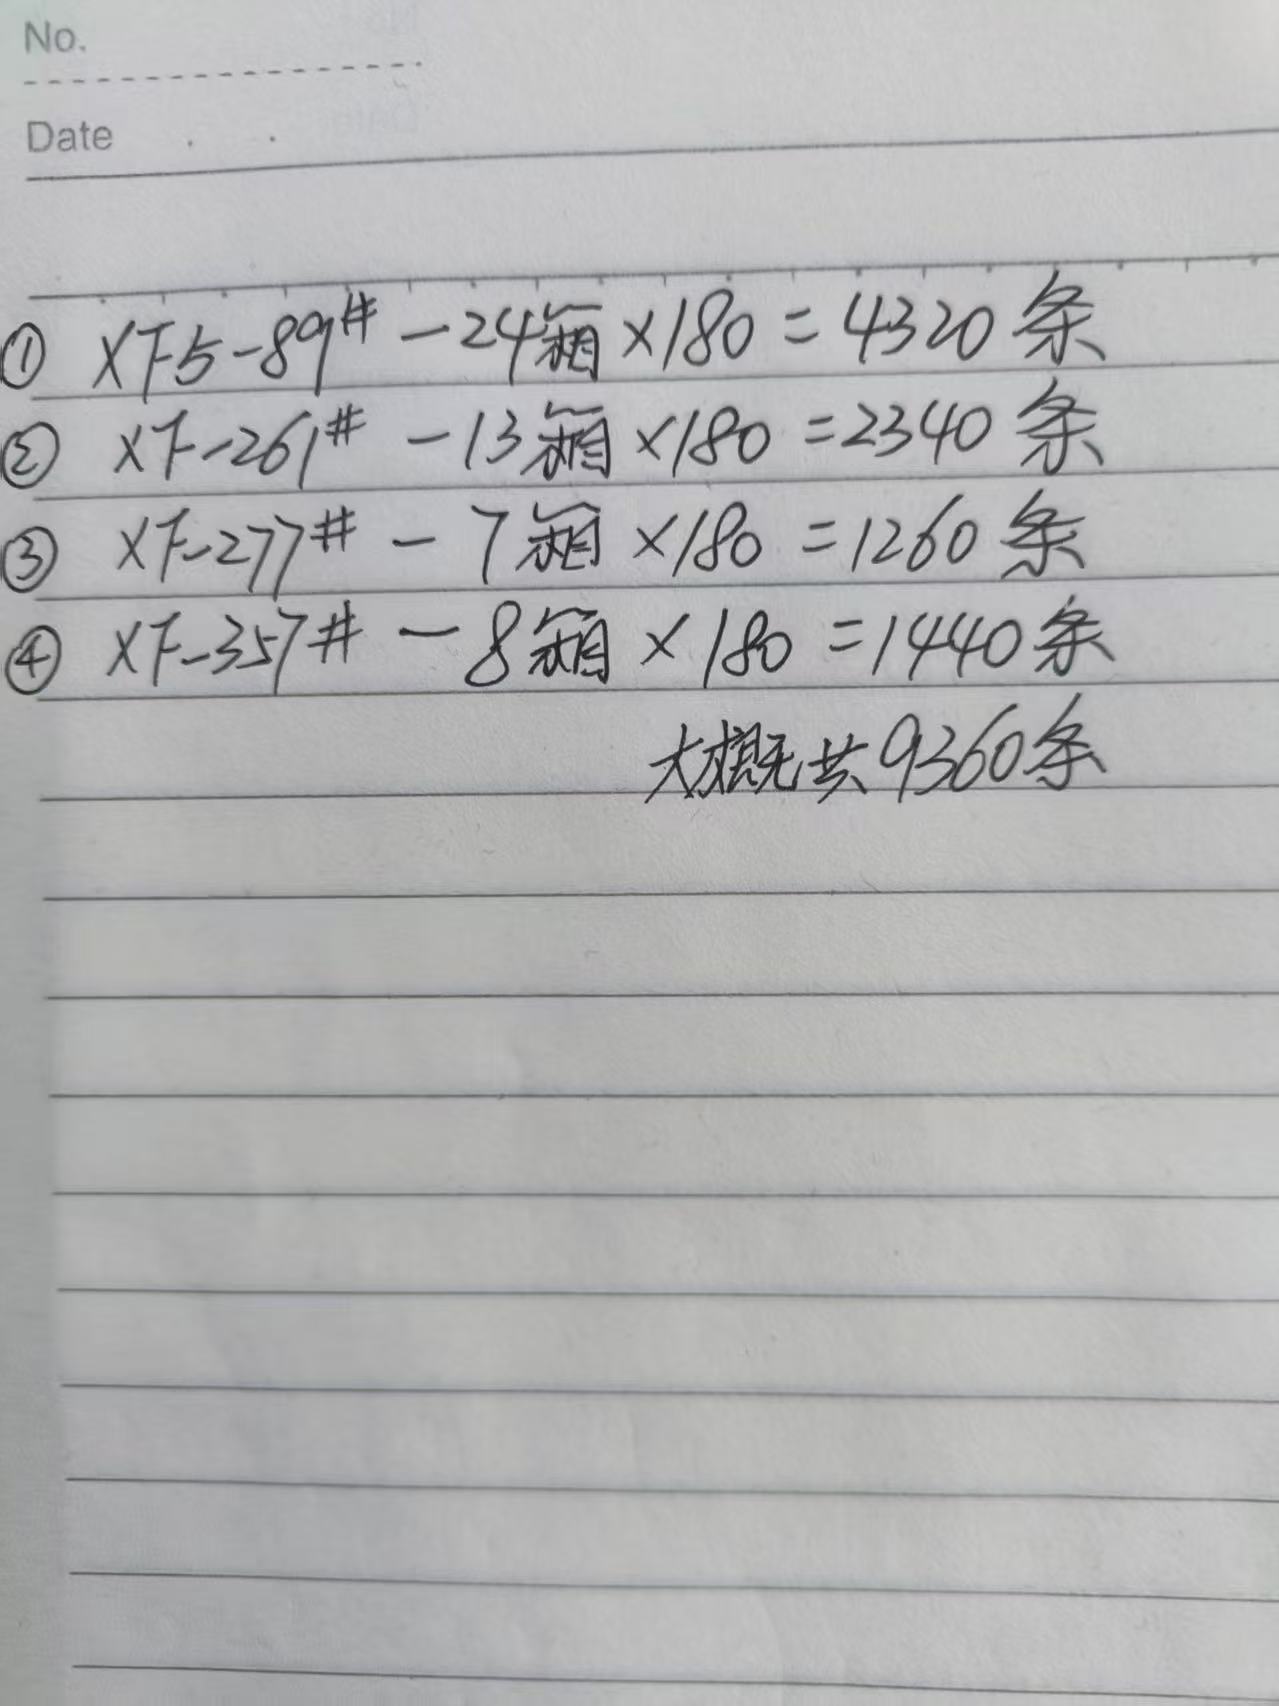 No.
Date
① XF5-89# -24箱×180=4320条
② XF-261# -13箱×180=2340条
③ XF-277# -7箱×180=1260条
④ XF-357# -8箱×180=1440条
大概共9360条